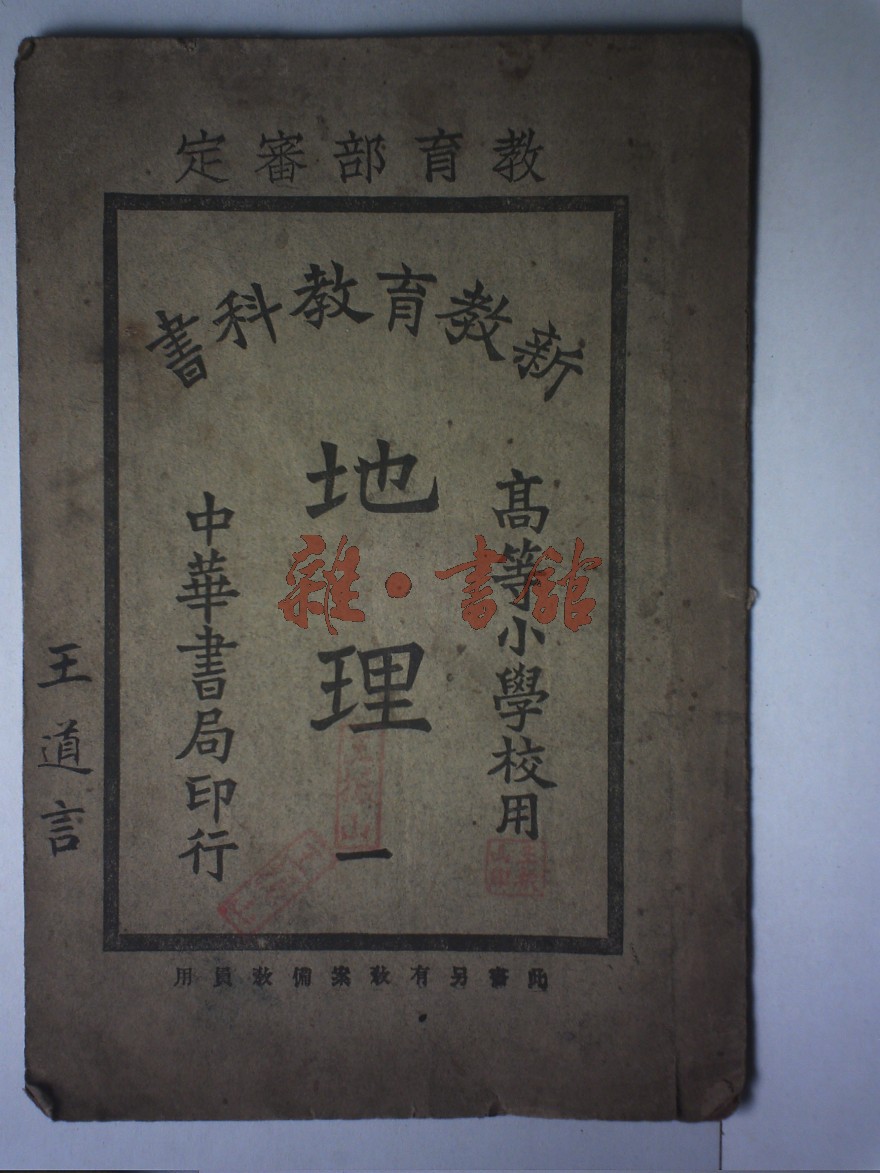 教育部審定
新教育教科書
高等小學校用
地理 一
中華書局印行
王道言
此書另有教案備教員用
雜·書館